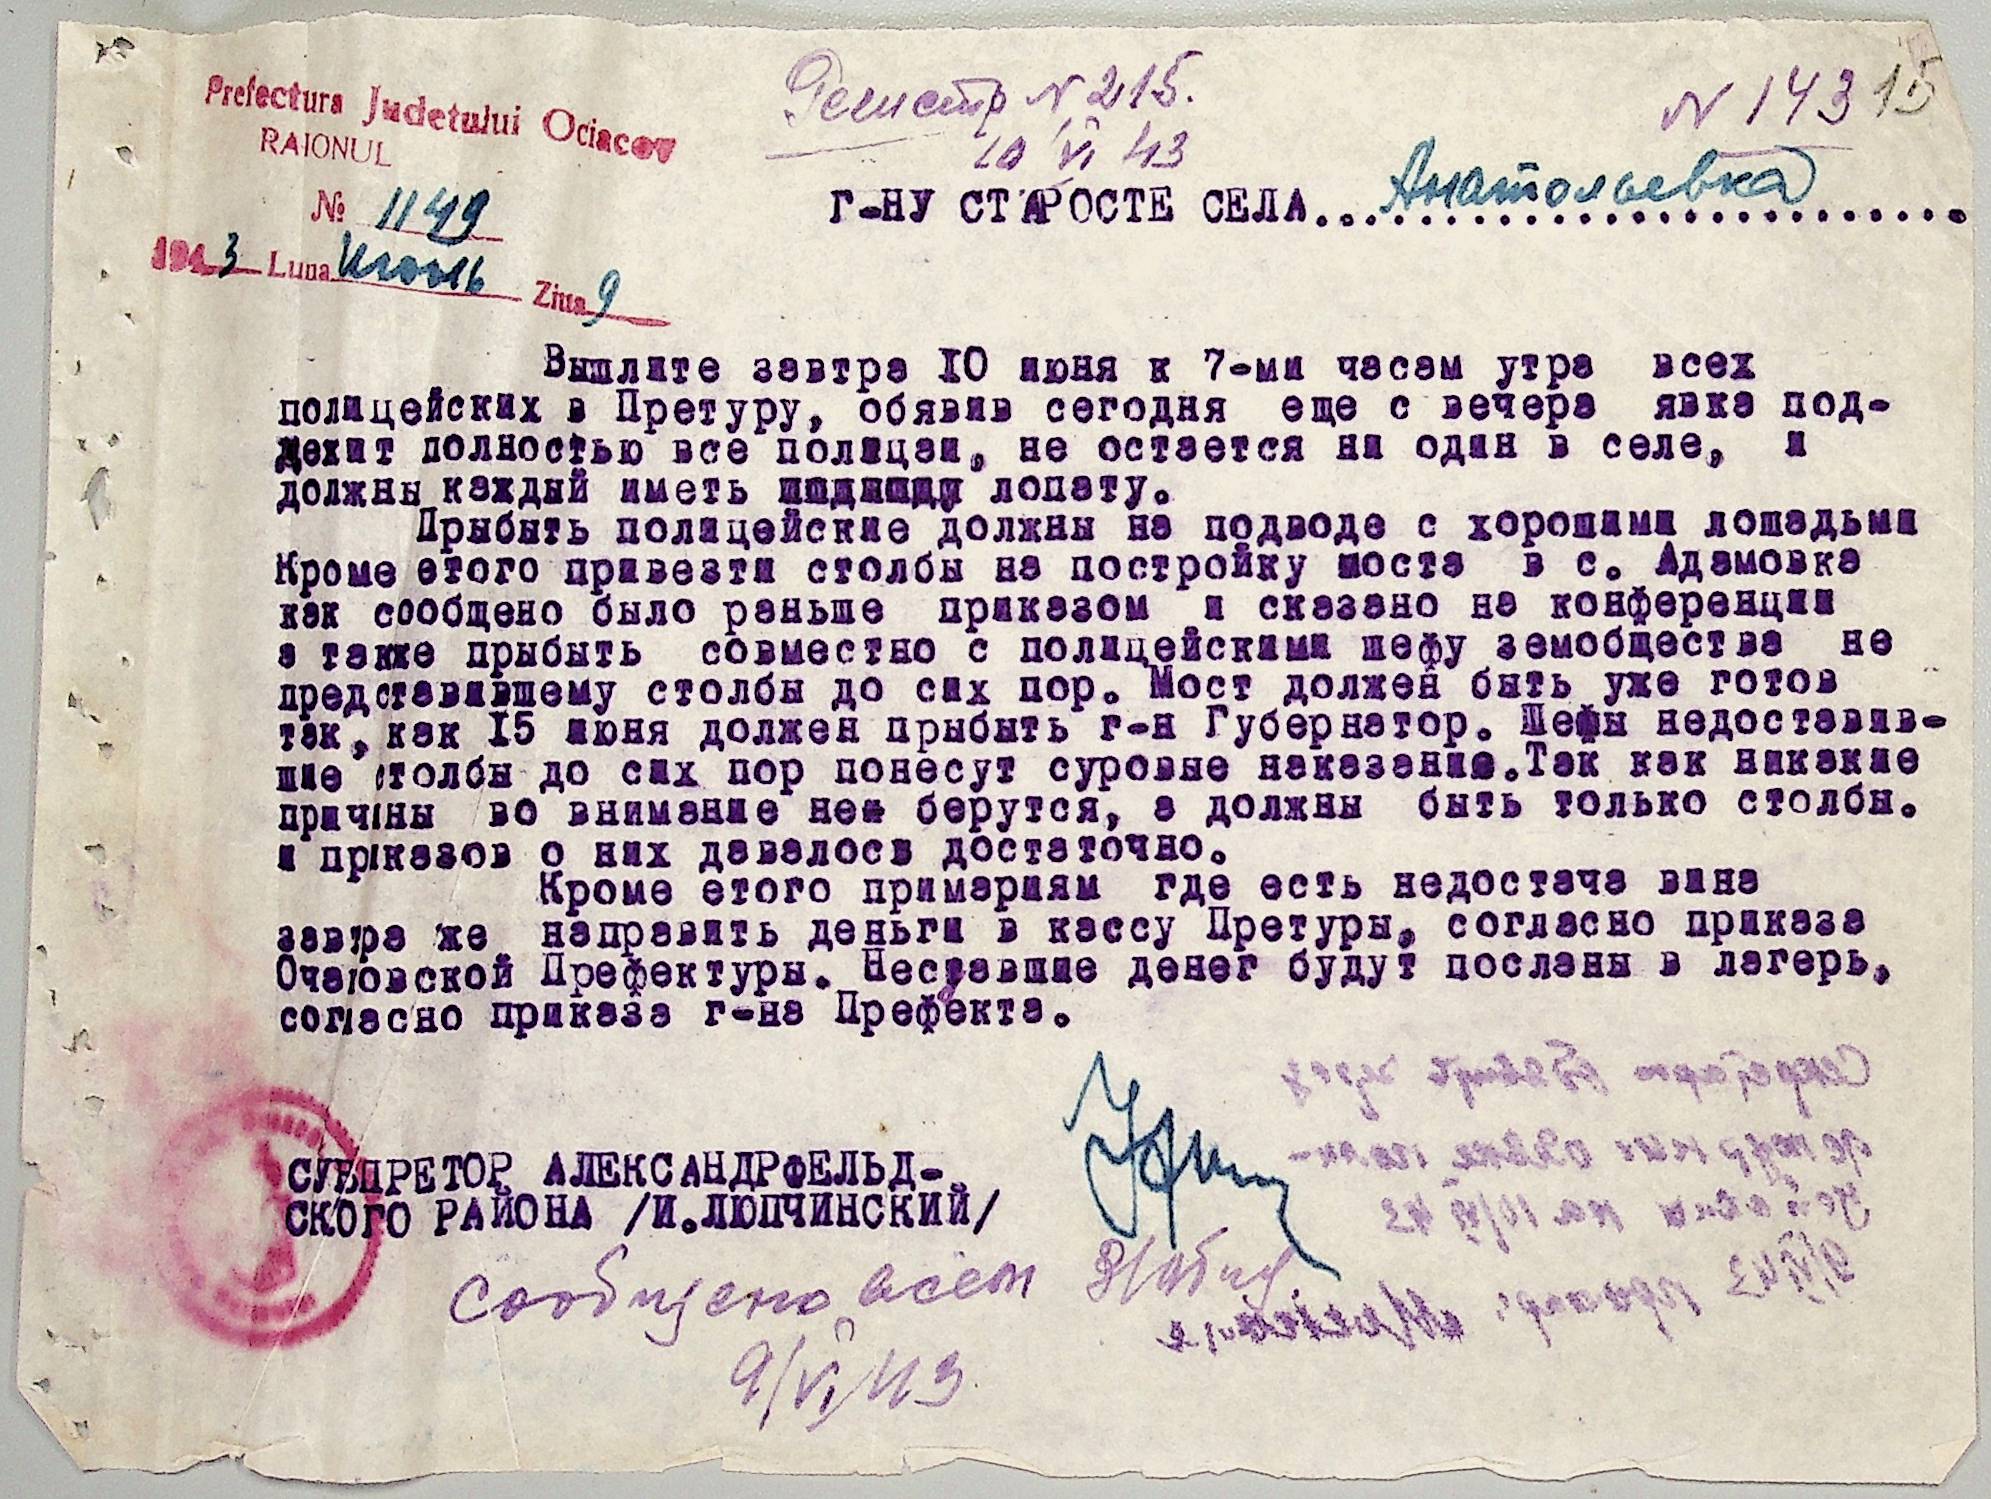 Prefectura Judetului Ociacov
RAIONUL
№ 1149
1943 Luna Июнь Ziua 9
Регистр N 215.
10 VI 43
N 143 15
Г-НУ СТАРОСТЕ СЕЛА Анатольевка
Вышлите завтра 10 июня к 7-ми часам утра всех
полицейских в Претуру, обявив сегодня еще с вечера явка под-
лежит полностью все полицаи, не остается ни один в селе, и
должны каждый иметь лопату.
Прыбыть полицейские должны на подводе с хорошими лошадьми
Кроме етого привезти столбы на постройку моста в с. Адамовка
как сообщено было раньше приказом и сказано на конференции
а также прыбыть совместно с полицейскими шефу земобщества не
представившему столбы до сих пор. Мост должен быть уже готов
так, как 15 июня должен прыбыть г-н Губернатор. Шефы недоставив-
шие столбы до сих пор понесут суровые наказание. Так как никакие
причины во внимание не берутся, а должны быть только столбы.
и приказов о них давалось достаточно.
Кроме етого примариям где есть недостача вина
завтра же направить деньги в кассу Претуры, согласно приказа
Очаковской Префектуры. Неставшие денег будут посланы в лагерь,
согласно приказа г-на Префекта.
СУБПРЕТОР АЛЕКСАНДРФЕЛЬД-
СКОГО РАЙОНА /И.ЛЮПЧИНСКИЙ/
Сообщено всем
9/VI/43